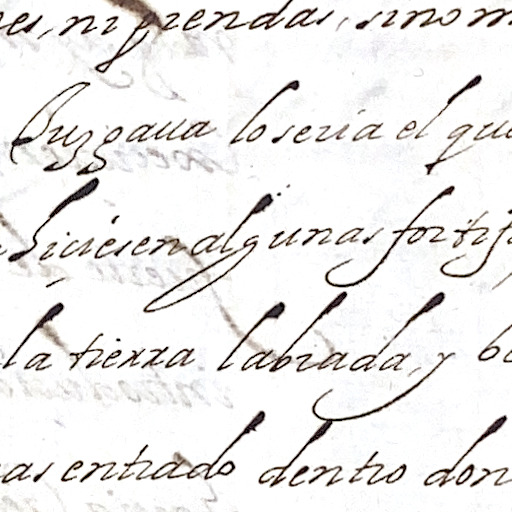 es, ni prendas, sino m
Juzgaua lo seria el que
hiciesen algunas fortifi
la tierra labrada, y b
as entrado dentro don